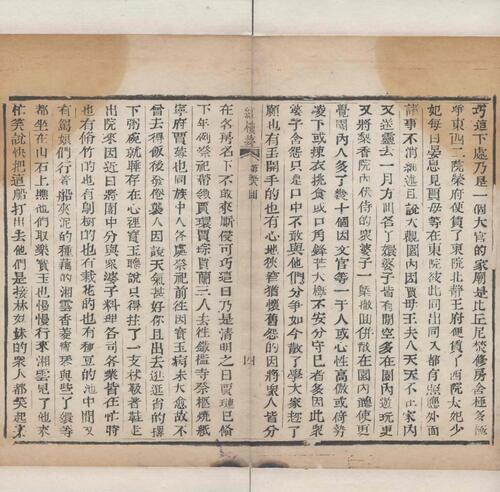 巧這下處乃是一個大官的家廟是比丘尼焚修房舍極多極
淨東西二院榮府便賃了東院北靜王府便賃了西院太妃少
妃每日宴息見賈母等在東院彼此同出同入都有照應外面
諸事不消細述且說大觀園內因賈母王夫人天天不在家內
又送靈去一月方回各丫鬟婆子皆有閒空多在園內遊玩更
又將梨香院內伏侍的衆婆子一槩撤回併散在園內聽使更
覺園內人多了幾十個因文官等一干人或心性高傲或倚勢
凌下或揀衣挑食或口角鋒芒大槩不安分守己者多因此衆
婆子含怨只是口中不敢與他們分爭如今散了學大家趂了
願也有丟開手的也有心地狹窄猶懷舊怨的因將衆人皆分
紅樓夢
第五八回
四
在各房名下不敢來厮侵可巧這日乃是清明之日賈璉已偹
下年例祭祀帶領賈環賈琮賈蘭三人去徃鐵檻寺祭柩燒紙
寧府賈蓉也同族中人各處祭祀前徃因寶玉病未大愈故不
曾去得飯後發倦襲人因說天氣甚好你且出去逛逛省的撂
下粥碗就睡存在心裡寶玉聽說只得拄了一支杖靸着鞋走
出院來因近日將園中分與衆婆子料理各司各業皆在忙時
也有脩竹的也有剔樹的也有栽花的也有種豆的池中間又
有駕娘們行着船夾泥的種藕的湘雲香菱寶琴與些丫鬟等
都坐在山石上瞧他們取樂寶玉也慢慢行來湘雲見了他來
忙笑說快把這船打出去他們是接林妹妹的衆人都笑起來